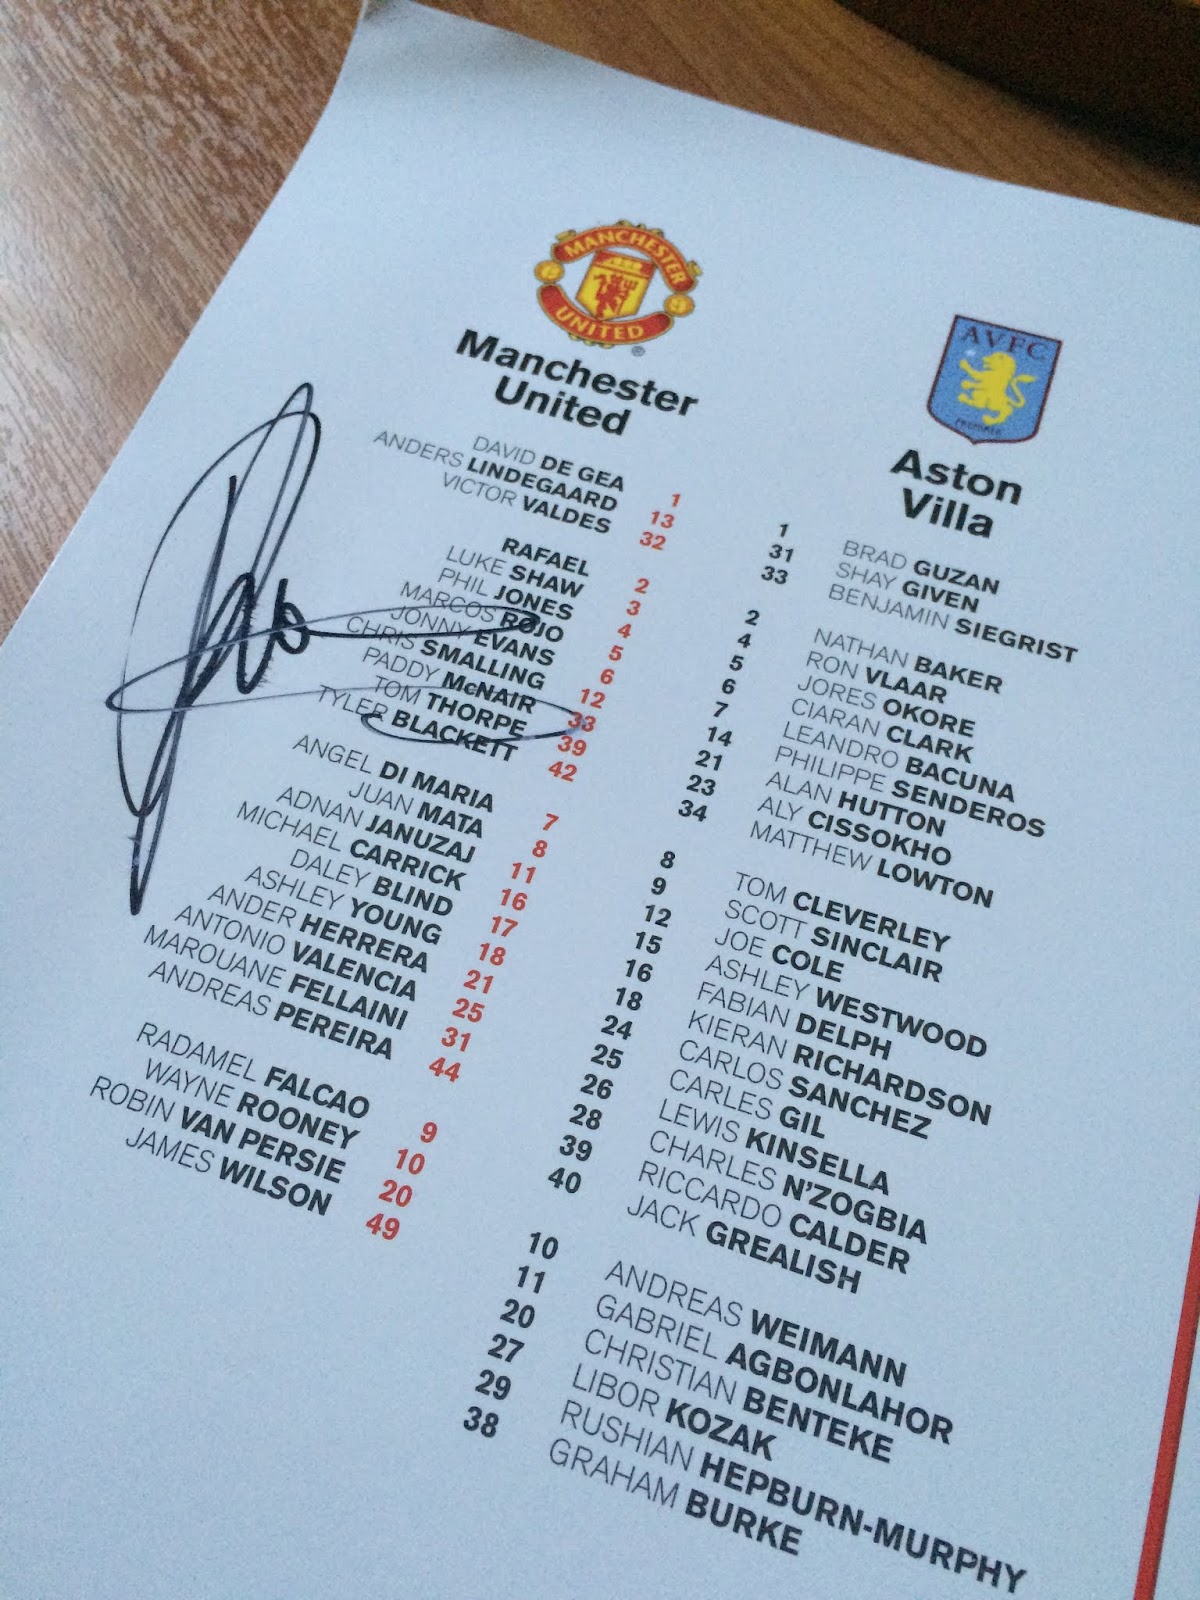 MANCHESTER
UNITED
®
Manchester
United
DAVID DE GEA 1
ANDERS LINDEGAARD 13
VICTOR VALDES 32
RAFAEL 2
LUKE SHAW 3
PHIL JONES 4
MARCOS ROJO 5
JONNY EVANS 6
CHRIS SMALLING 12
PADDY McNAIR 33
TOM THORPE 39
TYLER BLACKETT 42
ANGEL DI MARIA 7
JUAN MATA 8
ADNAN JANUZAJ 11
MICHAEL CARRICK 16
DALEY BLIND 17
ASHLEY YOUNG 18
ANDER HERRERA 21
ANTONIO VALENCIA 25
MAROUANE FELLAINI 31
ANDREAS PEREIRA 44
RADAMEL FALCAO 9
WAYNE ROONEY 10
ROBIN VAN PERSIE 20
JAMES WILSON 49
AVFC
PREPARED
Aston
Villa
1 BRAD GUZAN
31 SHAY GIVEN
33 BENJAMIN SIEGRIST
2 NATHAN BAKER
4 RON VLAAR
5 JORES OKORE
6 CIARAN CLARK
7 LEANDRO BACUNA
14 PHILIPPE SENDEROS
21 ALAN HUTTON
23 ALY CISSOKHO
34 MATTHEW LOWTON
8 TOM CLEVERLEY
9 SCOTT SINCLAIR
12 JOE COLE
15 ASHLEY WESTWOOD
16 FABIAN DELPH
18 KIERAN RICHARDSON
24 CARLOS SANCHEZ
25 CARLES GIL
26 LEWIS KINSELLA
28 CHARLES N'ZOGBIA
39 RICCARDO CALDER
40 JACK GREALISH
10 ANDREAS WEIMANN
11 GABRIEL AGBONLAHOR
20 CHRISTIAN BENTEKE
27 LIBOR KOZAK
29 RUSHIAN HEPBURN-MURPHY
38 GRAHAM BURKE